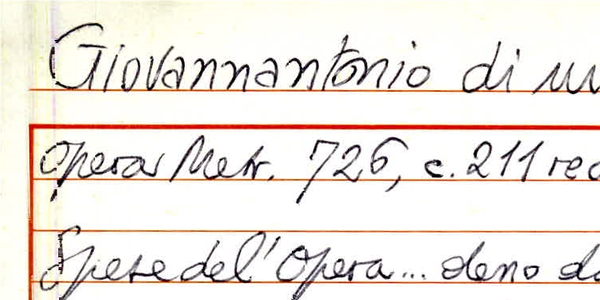 Giovannantonio di
Opera Metr. 726, c. 211 rec
Spese del' Opera... deno da